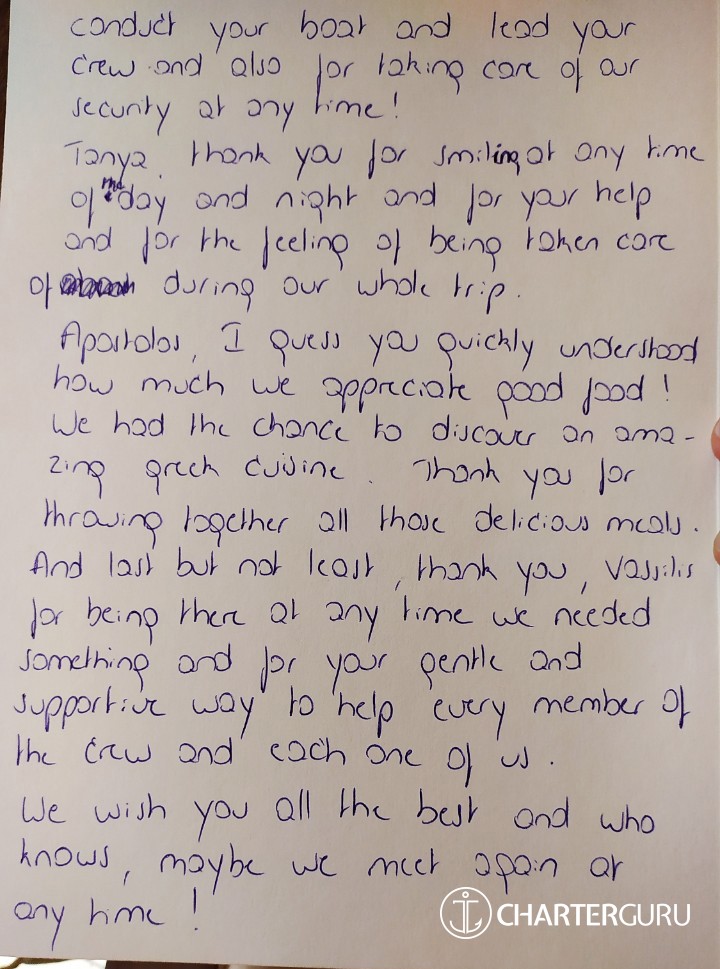 conduct your boat and lead your
crew and also for taking care of our
security at any time!
Tanya, thank you for smiling at any time
of the day and night and for your help
and for the feeling of being taken care
of during our whole trip.
Apostolos, I guess you quickly understood
how much we appreciate good food!
We had the chance to discover an ama-
zing greek cuisine. Thank you for
throwing together all those delicious meals.
And last but not least, thank you, Vassilis
for being there at any time we needed
something and for your gentle and
supportive way to help every member of
the crew and each one of us.
We wish you all the best and who
knows, maybe we meet again at
any time!
CHARTERGURU